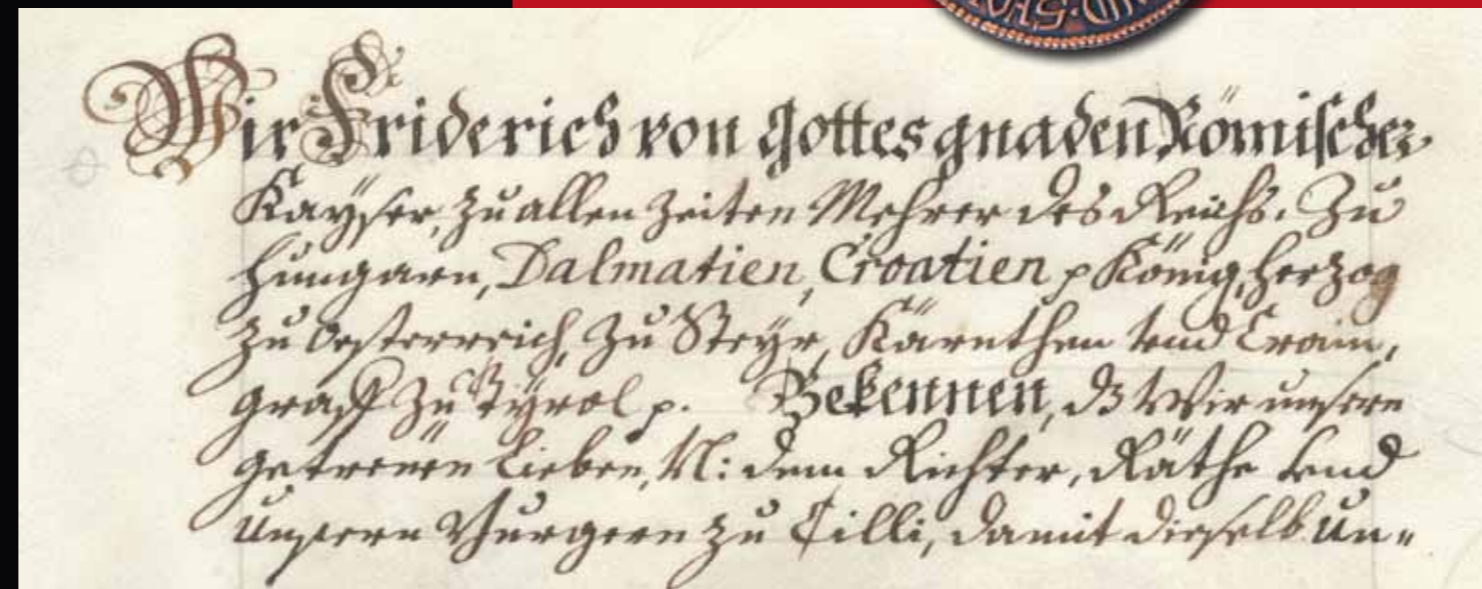 Wir Friderich von Gottes gnaden Römischer
Kayser, zu allen Zeiten Mehrer des Reichs. Zu
Hungarn, Dalmatien, Croatien p König, Herzog
zu Oesterreich, zu Steyr, Kärnthen und Crain,
graff zu Tÿrol p. Bekennen, dß Wir unsere
getreuen Lieben, N: dem Richter, Räthe und
Unsern Burgern zu Cilli, damit dieselb Un=